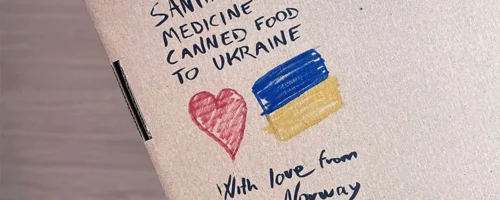 MEDICINE
CANNED FOOD
TO UKRAINE
With love from
Norway